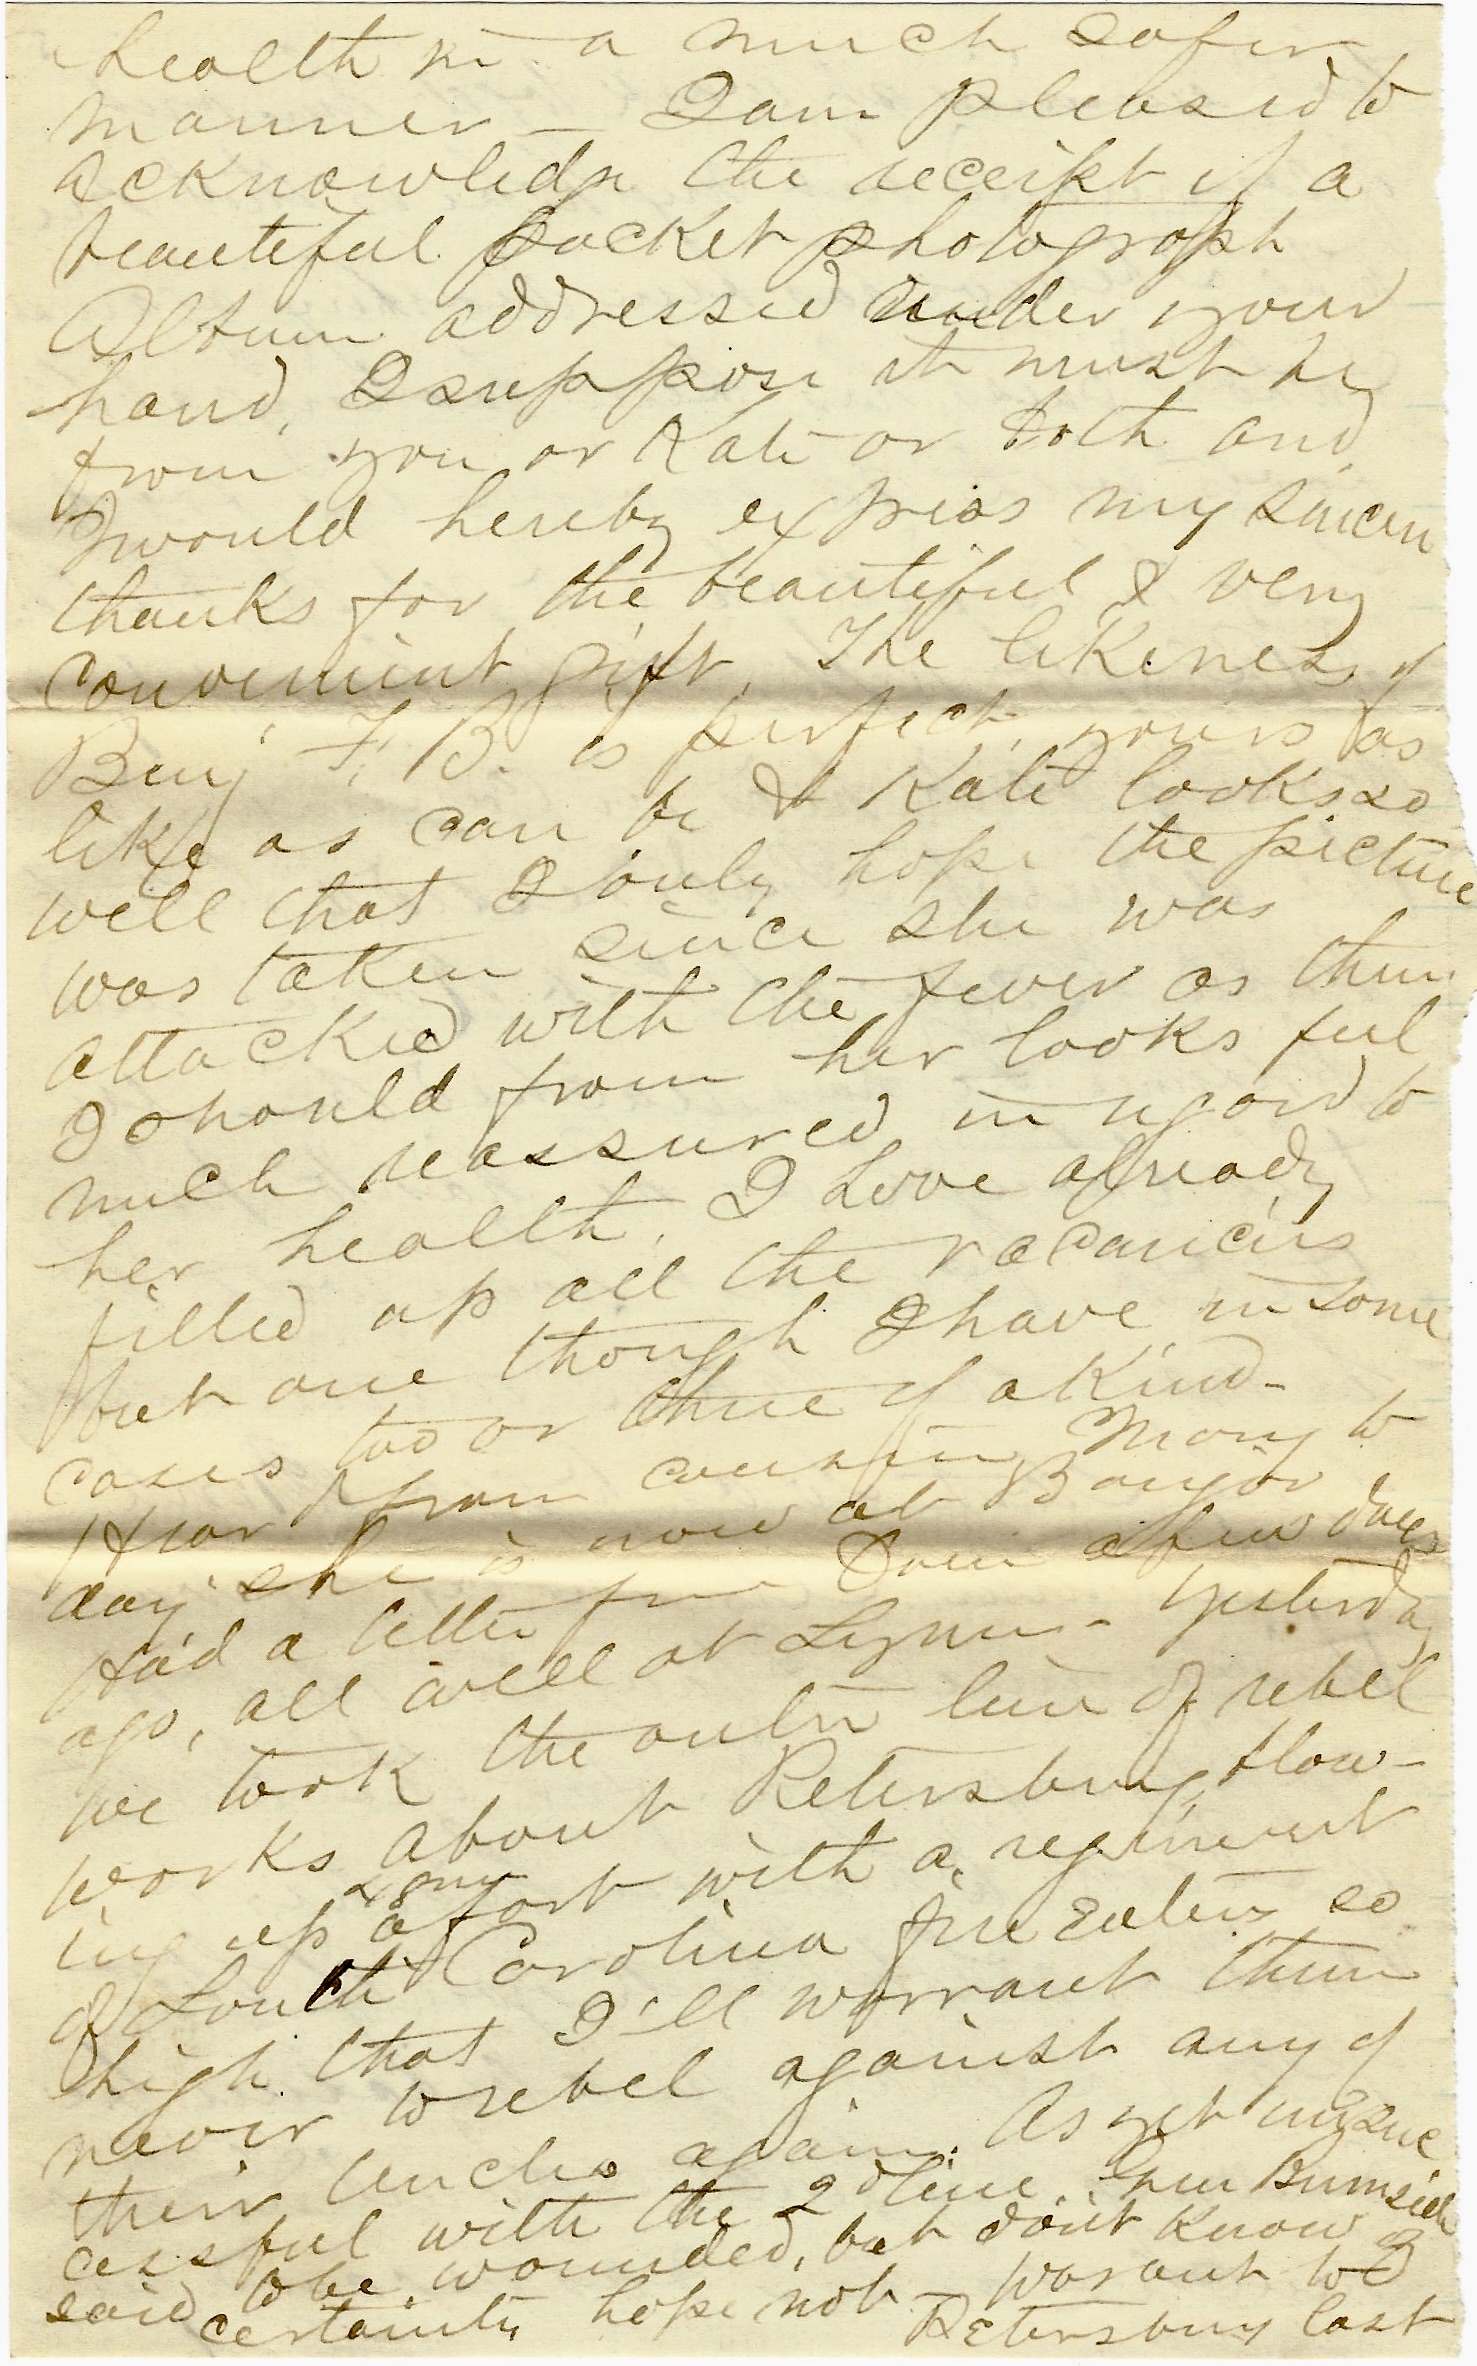 health in a much safer
manner — I am pleased to
acknowledge the receipt of a
beautiful pocket photograph
Album addressed under your
hand, I suppose it must be
from you or Kate or both and
I would hereby express my sincere
thanks for the beautiful & very
convenient gift. The likeness of
Benj. F. B. is perfect, yours as
like as can be & Kate looks so
well that I only hope the picture
was taken since she was
attacked with the fever as then
I should from her looks feel
much reassured in regard to
her health. I have already
filled up all the vacancies
but one though I have in some
cases two or three of a kind —
Hear from cousin Mary to
day she is now at Bangor
Had a letter from a few days
ago, all well at Lynn — Yesterday
we took the outer line of rebel
works about Petersburg, blow-
ing up a fort with a regiment
& guns
of South Carolina fire Eaters so
high that I'll warrant them
never to rebel against any of
their uncles again. As yet unsuc
cessful with the 2d line. Gen Burnside
said to be wounded, but don't know a
certainty hope not — was out to
Petersburg last